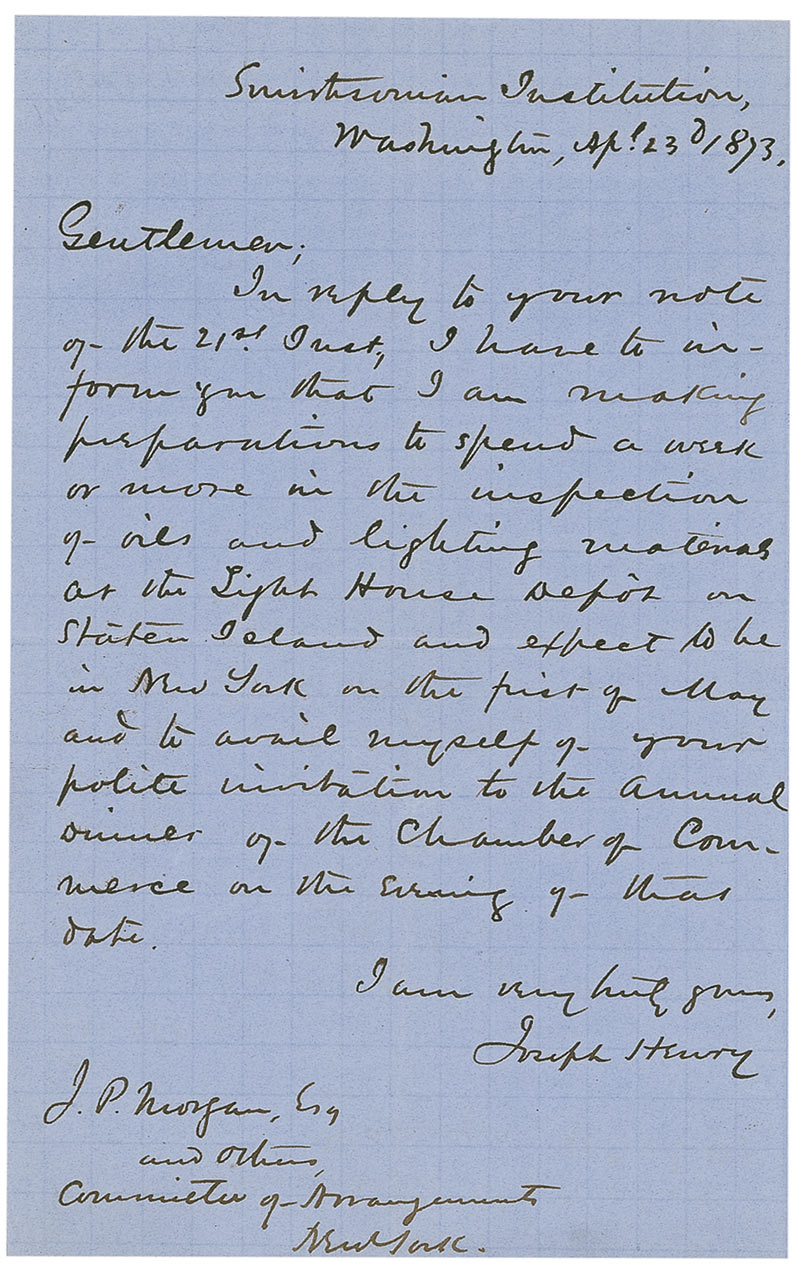 Smithsonian Institution,
Washington, Apl. 23d, 1873.
Gentlemen;
In reply to your note
of the 21st. Inst, I have to in-
form you that I am making
preparations to spend a week
or more in the inspection
of oils and lighting materials
at the Light House Depôt on
Staten Island and expect to be
in New York on the first of May
and to avail myself of your
polite invitation to the Annual
Dinner of the Chamber of Com-
merce on the Evening of that
date.
I am very truly yours,
Joseph Henry
J. P. Morgan, Esq
and others,
Committee of Arrangements
New York.